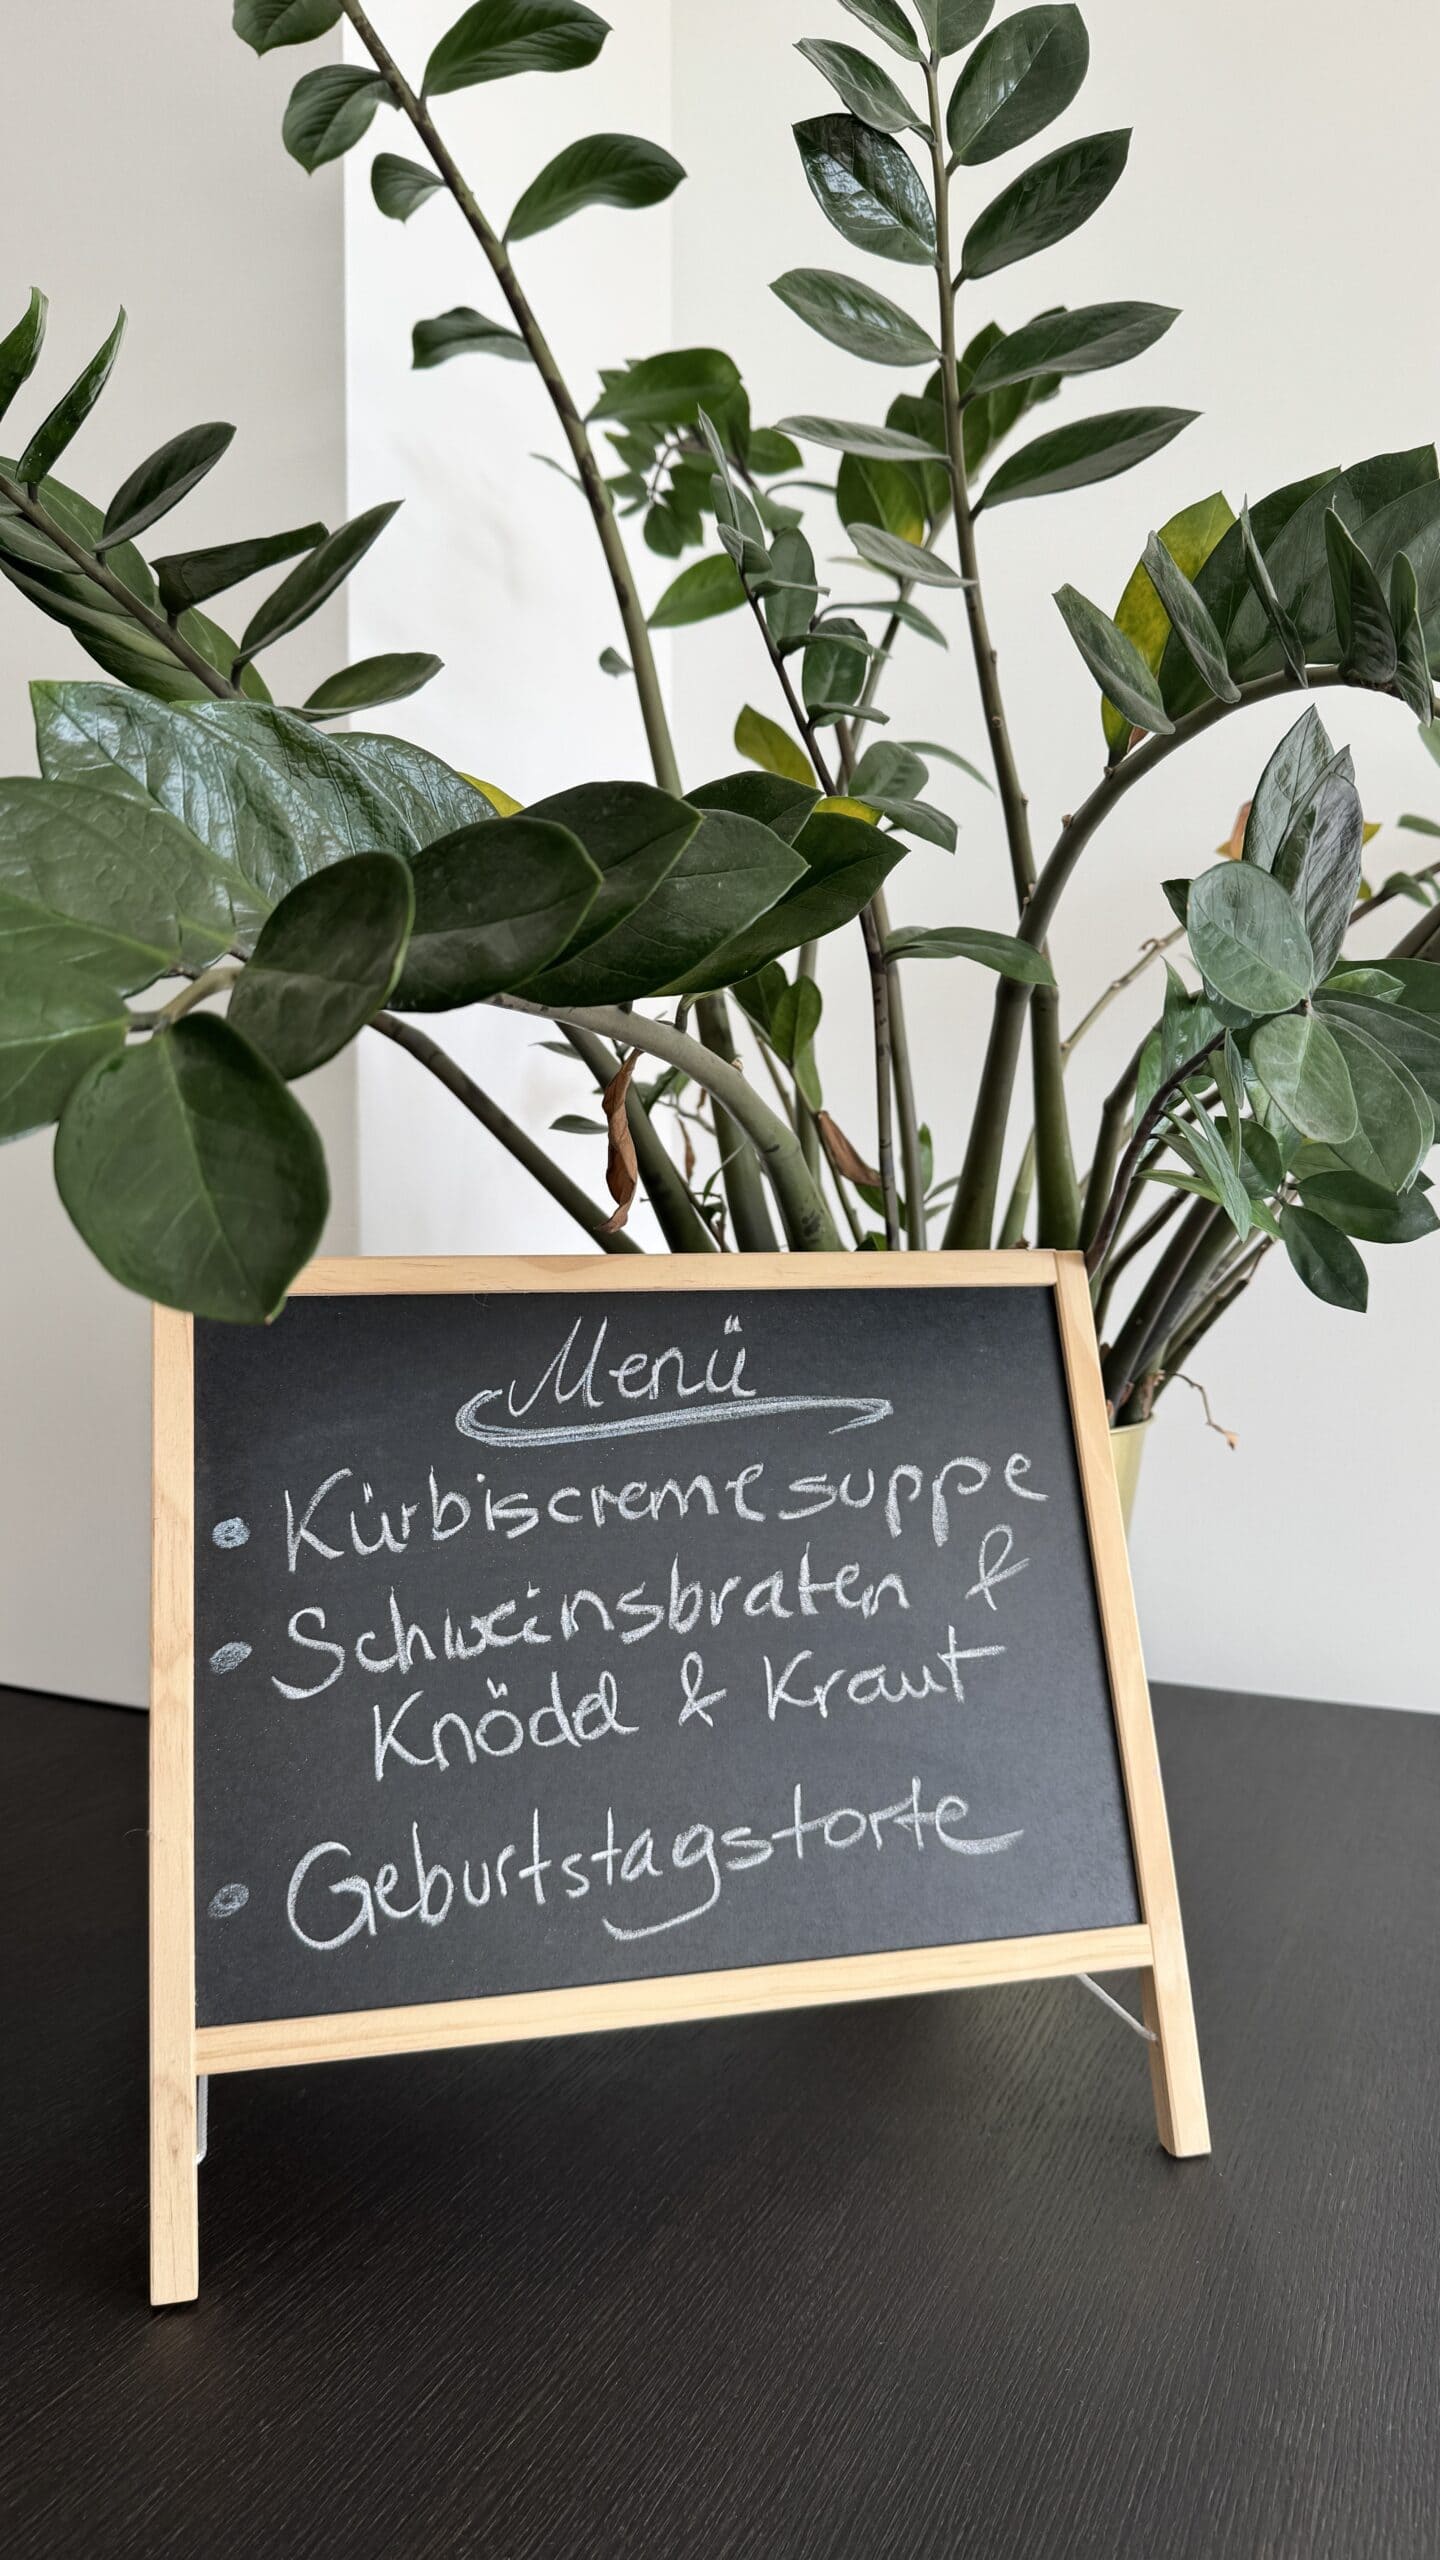 Menü
• Kürbiscremesuppe
• Schweinsbraten &
Knödel & Kraut
• Geburtstagstorte